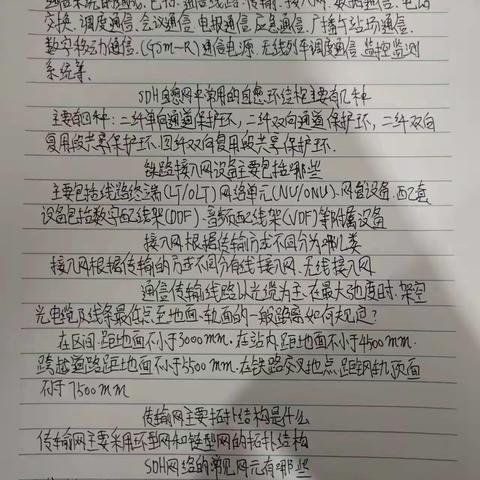 通信系统的组成,包括:通信线路.传输.接入网.数据通信.电话
交换.调度通信.会议通信.电报通信.应急通信.广播与站场通信.
数字移动通信.(GSm-R)通信电源.无线列车调度通信.监控监测
系统等.
SDH自愈网中常用的自愈环结构主要有几种
主要有四种:二纤单向通道保护环,二纤双向通道保护环,二纤双向
复用段共享保护环.四纤双向复用段共享保护环.
铁路接入网设备主要包括哪些
主要包括线路终端(LT/OLT)网络单元(NU/ONU).网管设备.配套
设备包括数字配线架(DDF).音频配线架(VDF)等附属设备
接入网根据传输方式不同分为哪几类
接入网根据传输的方式不同分有线接入网.无线接入网
通信传输线路以光缆为主.在最大弛度时.架空
光电缆及线条最低点至地面.轨面的一般距离如何规定?
在区间.距地面不小于3000mm.在站内.距地面不小于4500mm.
跨越道路距地面不小于5500mm.在铁路交叉地点.距钢轨顶面
不小于7500mm
传输网主要拓扑结构是什么
传输网主要采用环型网和链型网的拓扑结构
SDH网络的常见网元有哪些